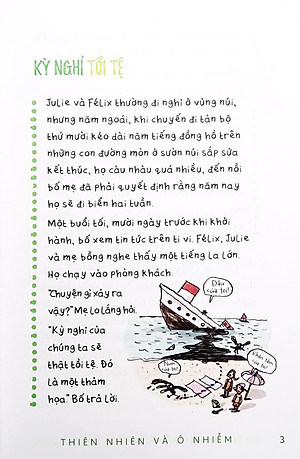 KỲ NGHỈ TỒI TỆ
Julie và Félix thường đi nghỉ ở vùng núi,
nhưng năm ngoái, khi chuyến đi tản bộ
thứ mười kéo dài năm tiếng đồng hồ trên
những con đường mòn ở sườn núi sắp sửa
kết thúc, họ càu nhàu quá nhiều, đến nỗi
bố mẹ đã phải quyết định rằng năm nay
họ sẽ đi biển hai tuần.
Một buổi tối, mười ngày trước khi khởi
hành, bố xem tin tức trên ti vi. Félix, Julie
và mẹ bỗng nghe thấy một tiếng la lớn.
Họ chạy vào phòng khách.
"Chuyện gì xảy ra
vậy?" Mẹ lo lắng hỏi.
"Kỳ nghỉ của
chúng ta sẽ
thật tồi tệ. Đó
là một thảm
họa." Bố trả lời.
Dầu
của tôi!
của tôi!
THIÊN NHIÊN VÀ Ô NHIỄM
3